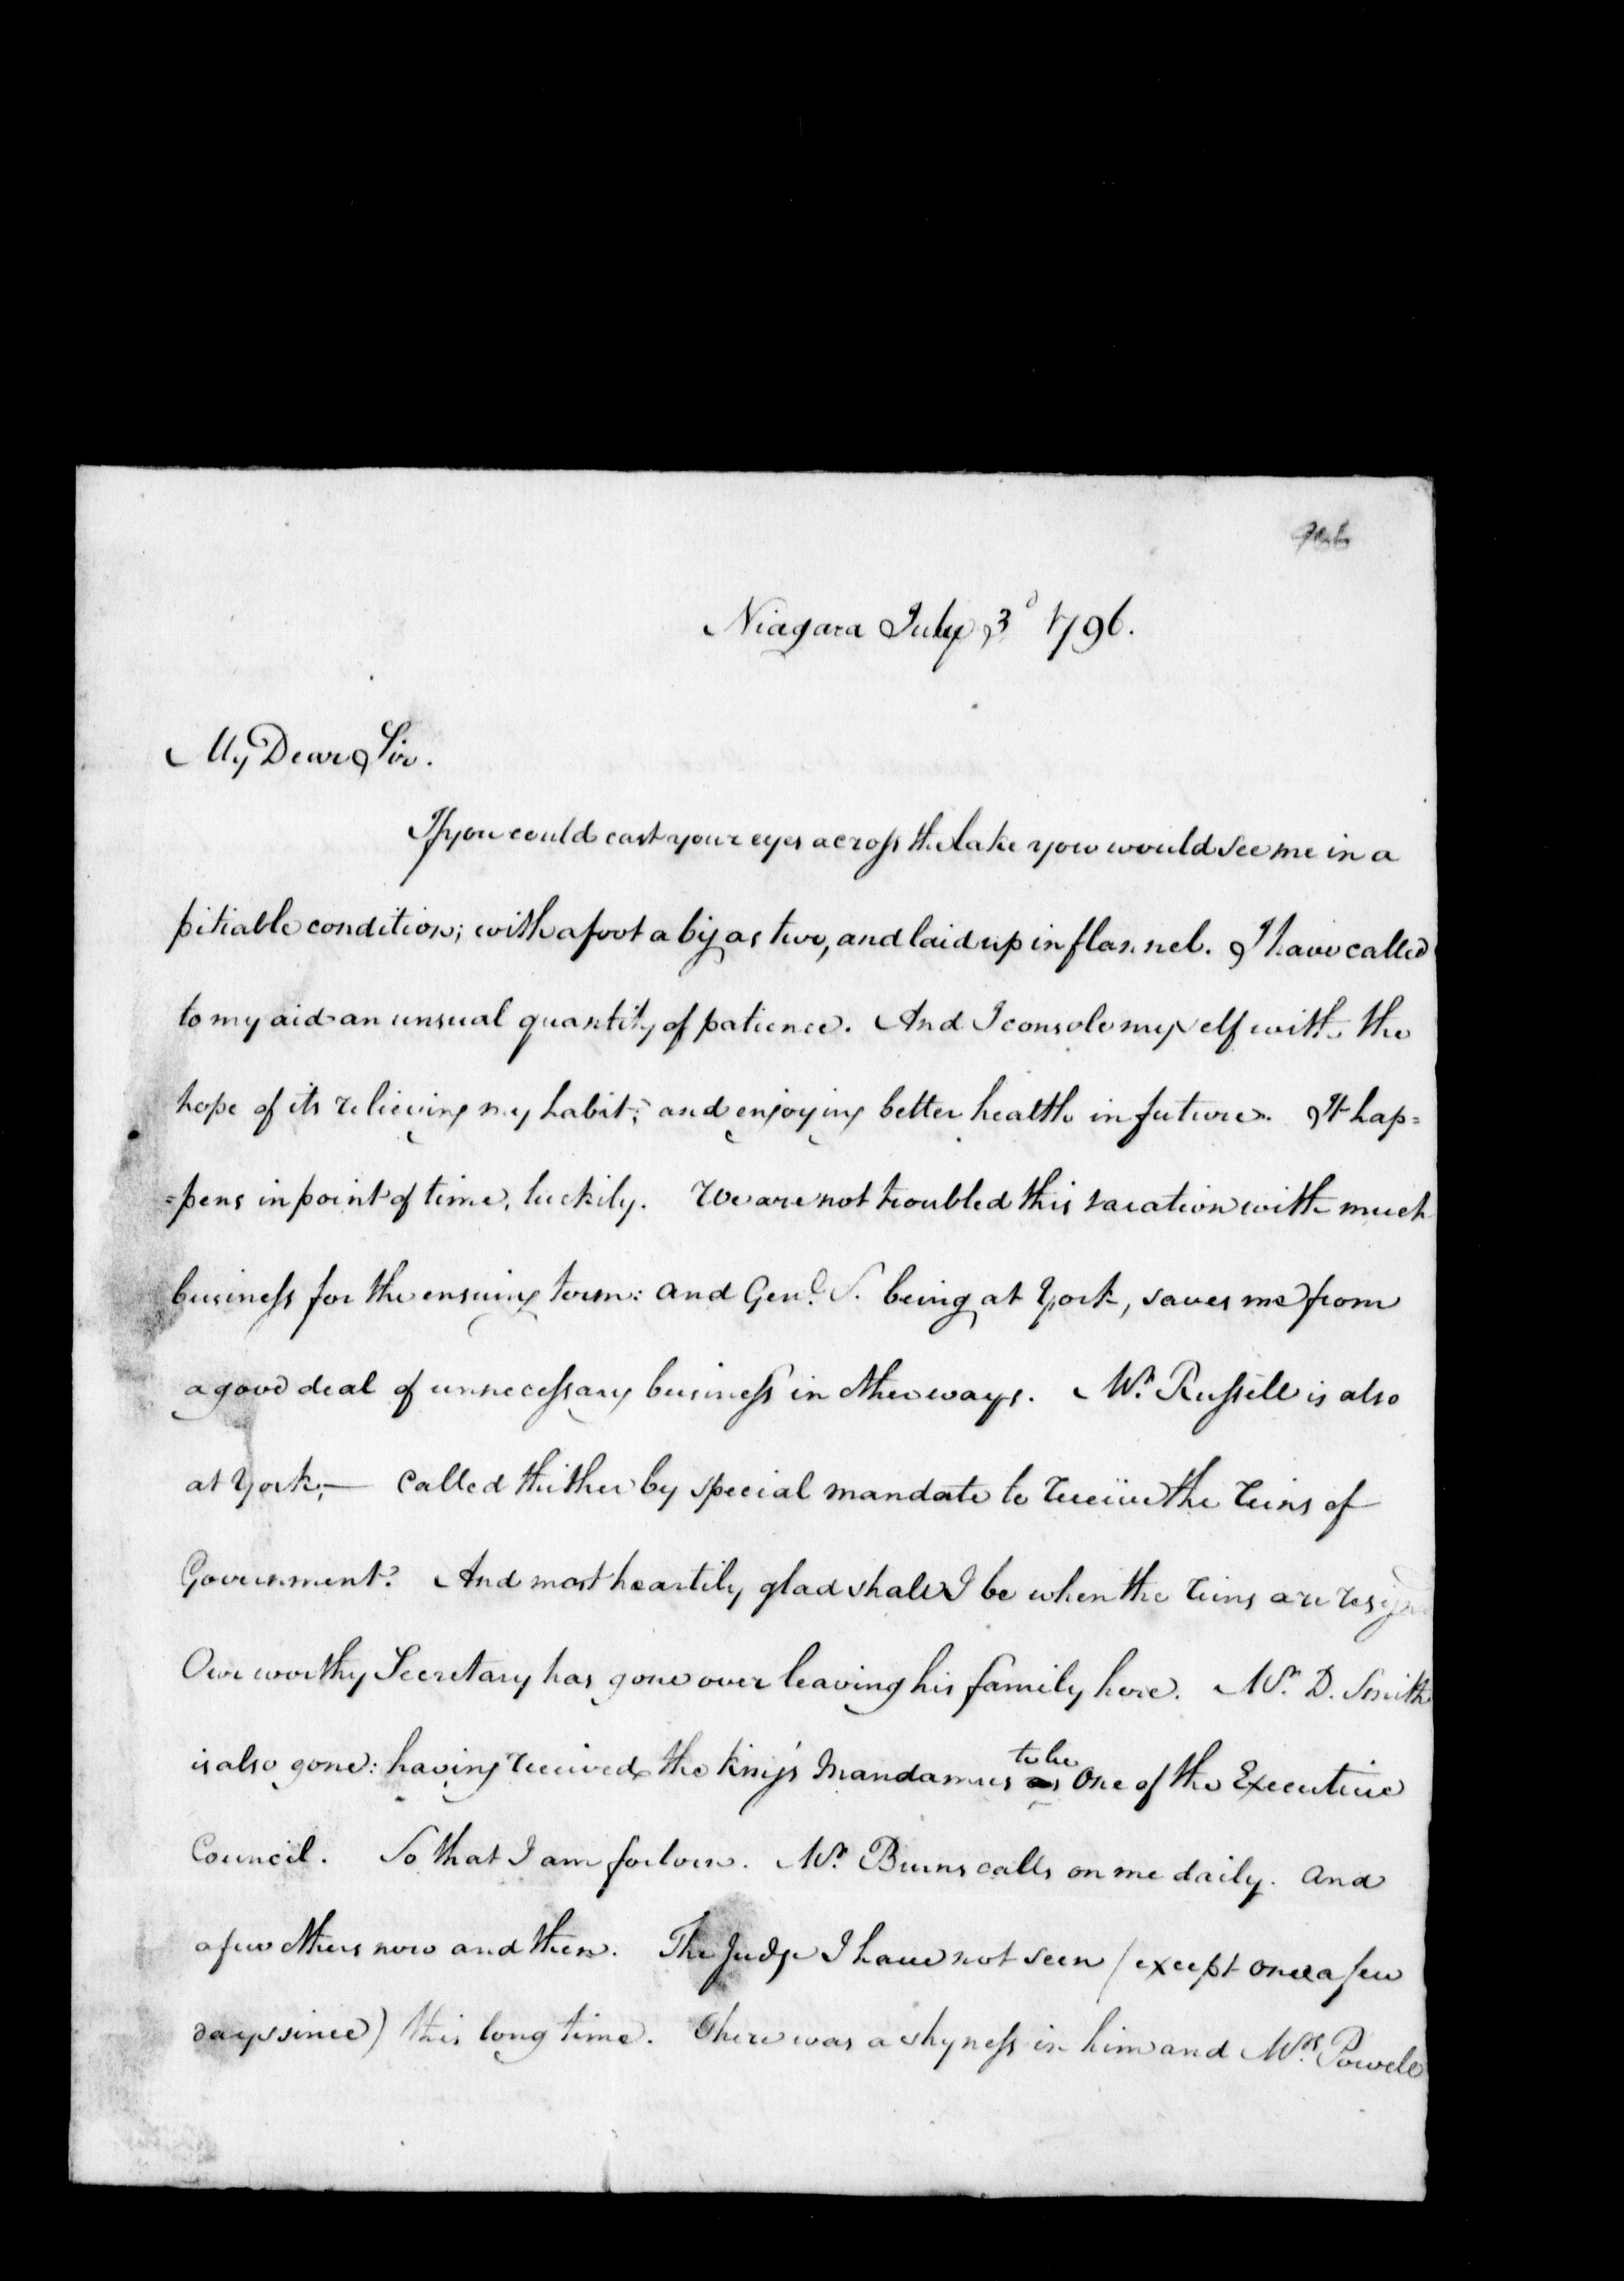 Niagara July 3d 1796.
My Dear Sir.
If you could cast your eyes across the lake you would see me in a
pitiable condition; with a foot a big as two, and laid up in flannel. I have called
to my aid an unsual quantity of patience. And I console myself with the
hope of its relieving my habit; and enjoying better health in future. It hap=
=pens in point of time, luckily. We are not troubled this vacation with much
business for the ensuing term: and Genl. S. being at York, saves me from
a good deal of unnecessary business in other ways. Mr. Russell is also
at York;— called thither by special mandate to receive the reins of
Government. And most heartily glad shall I be when the reins are
Our worthy Secretary has gone over leaving his family here. Mr. D. Smith
is also gone: having received the king's Mandamus to be One of the Executive
Council. So that I am forlorn. Mr. Burns calls on me daily. and
a few others now and then. The Judge I have not seen (except once a few
days since) this long time. There was a shyness in him and Mrs. Powell